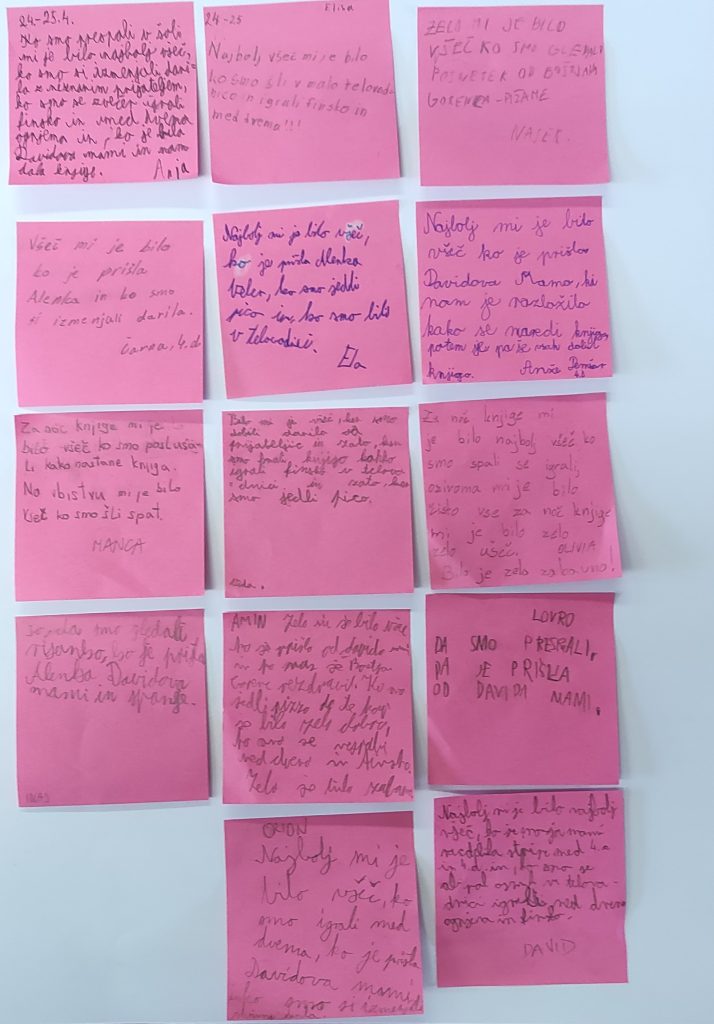 24-25.4.
Ko smo prespali v šoli
mi je bilo najbolj všeč,
ko smo si izmenjali dari-
la z neznanim prijateljem,
ko smo se zvečer igrali
finsko in med dvema
ognjema in, ko je bila
Davidova mami in nam
dala knjige.
Anja
Elisa
24-25
Najbolj všeč mi je bilo
ko smo šli v malo telovad
nico in igrali finsko in
med dvema!!!
ZELO MI JE BILO
VŠEČ KO SMO GLEDALI
POSNETEK OD BOŠTJANA
GORENCA-PIŽAME
Všeč mi je bilo
ko je prišla
Alenka in ko smo
si izmenjali darila.
4.d
Najbolj mi je bilo všeč,
ko je prišla Alenka
ko smo jedli
pico in, ko smo bili
v telovadici.
Ela
Najbolj mi je bilo
všeč ko je prišla
Davidova Mama, ki
nam je razložila
kako se naredi knjiga,
potem je pa še vsak dobil
knjigo. Anže
Za noč knjige mi je
bilo všeč ko smo posluša-
li kako nastane knjiga.
No vbistvu mi je bilo
všeč ko smo šli spat.
MANCA
Bilo mi je všeč, ker smo
dobili darila od
prijateljic in zato, ker
smo knjigo
igrali finsko v telova
dnici in zato, ker
smo jedli pico.
Za noč knjige mi
je bilo najbolj všeč ko
smo spali se igrali
oziroma mi je bilo
čisto vse za noč knjige
mi je bilo zelo
zelo všeč. OLIVIA
Bilo je zelo zabavno!
smo gledali
risanko, ko je prišla
Alenka, Davidova
mami in spanje.
AMIN Zelo mi je bilo všeč
ko je prišla od Davida mami
in ko nas je Boštjan
Gorenc pozdravil. Ko smo
jedli pizzo
je bila zelo dobra,
ko smo se
med dvema in finsko.
Zelo je bilo zabavno
LOVRO
DA SMO PRESPALI,
DA JE PRIŠLA
OD DAVIDA MAMI.
ORION
Najbolj mi je
bilo všeč, ko
smo igrali med
dvema, ko je prišla
Davidova mami
ko smo si izmenjali
Najbolj mi je bilo najbolj
všeč, ko je moja mami
razdelila stripe med 4.a
in 4.d in, ko smo se
ob pol osmih v telova-
dnici igrali med dvema
ognjema in finsko.
DAVID